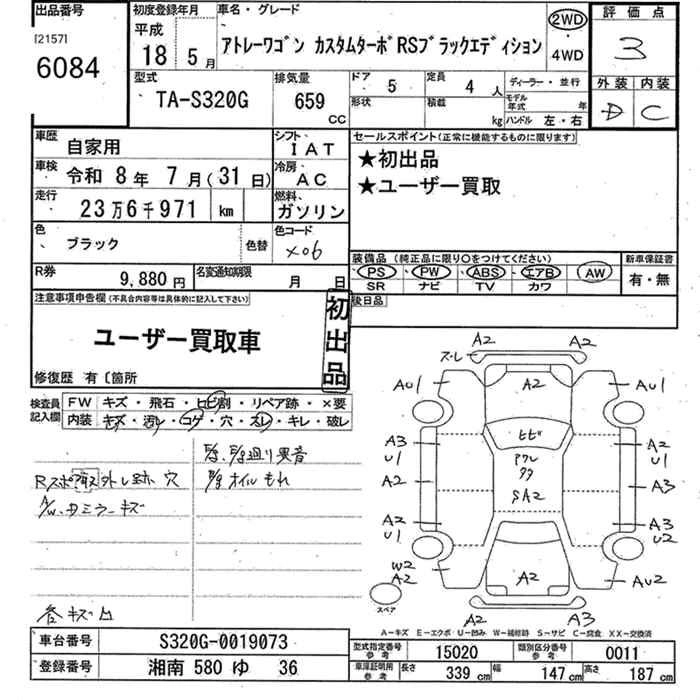 出品番号
[2157]
6084
初度登録年月
平成
18 5月
車名・グレード
アトレーワゴン カスタムターボRSブラックエディション
2WD
・
4WD
評価点
3
外装 内装
D C
型式
TA-S320G
排気量
659
CC
ドア
5
定員
4人
形状
積載
kg
ディーラー・並行
モデル年式 年
ハンドル 左・右
車歴
自家用
シフト
IAT
車検
令和 8年 7月(31日)
冷房
AC
走行
23万6千971 km
燃料
ガソリン
色
ブラック
色替
色コード
X06
R券
9,880円
名変通知期限
月 日
セールスポイント(正常に機能するものに限ります)
★初出品
★ユーザー買取
装備品 (純正品に限り○をつけてください)
PS PW ABS エアB AW
SR ナビ TV カワ
新車保証書
有・無
後日品
注意事項申告欄(不具合内容等は具体的に記入して下さい)
ユーザー買取車
初出品
修復歴 有〔箇所
検査員記入欄
FW キズ・飛石・ヒビ割・リペア跡・×要
内装 キズ・汚レ・コゲ・穴・スレ・キレ・破レ
外し跡 穴
ミラーキズ
廻り異音
オイルもれ
キズ凹
A2 A2
スレ
A2
AU1 AU1
ヒビ
A3
U1
A2
U1
A2
A3
A2
U1
A3
U2
SA2
W2
A2
A2
AU2
A2 A3
スペア
A−キズ E−エクボ U−凹み W−補修跡 S−サビ C−腐食 XX−交換済
車台番号
S320G-0019073
登録番号
湘南 580 ゆ 36
型式指定番号
参考
15020
類別区分番号
参考
0011
車庫証明用
参考
長さ
339 cm
幅
147 cm
高さ
187 cm